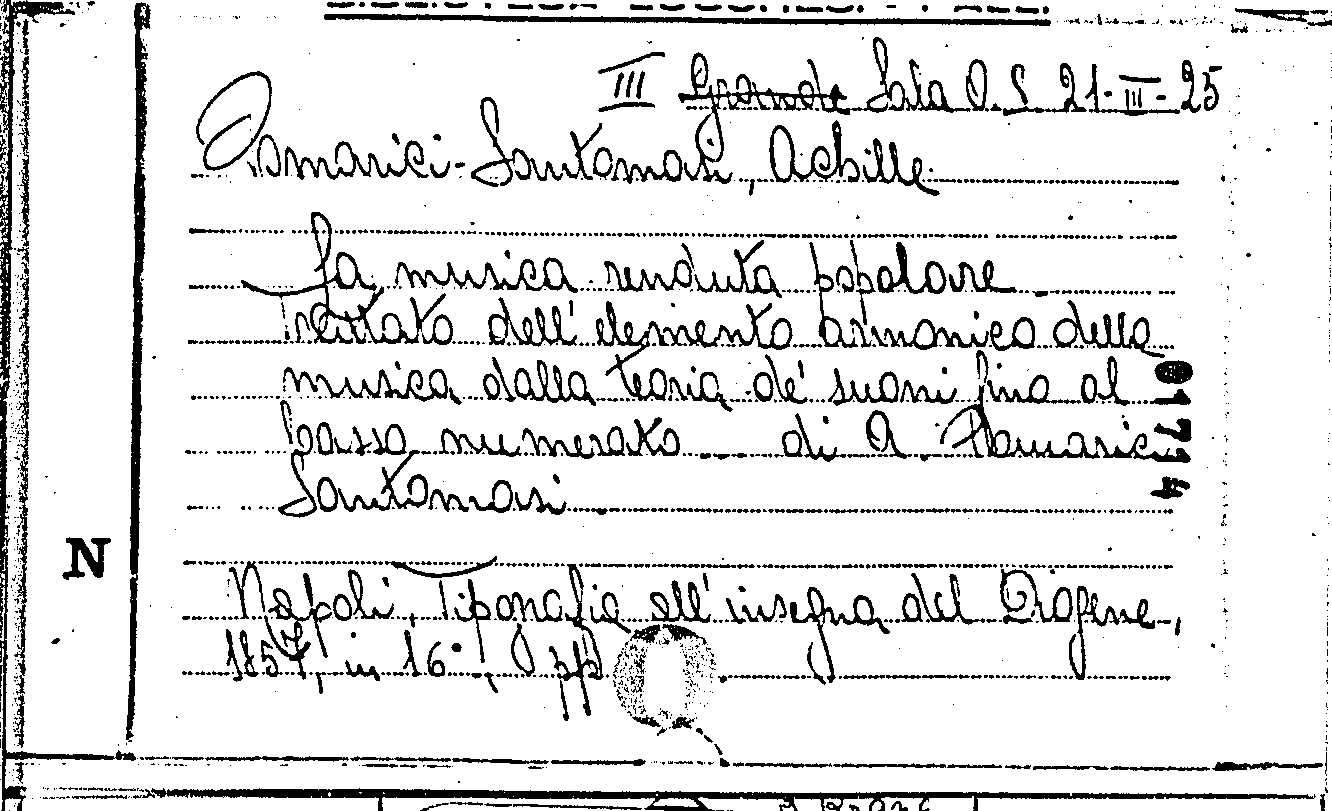 BIBLIOTECA LUCCHESI-PALLI
III ~~Grande~~ Sala O. S. 21-III-25
Pomarici-Santomasi, Achille
La musica renduta popolare
Trattato dell'elemento armonico della
musica dalla teoria de' suoni fino al
basso numerato ... di A. Pomarici
Santomasi
01734
N
Napoli, Tipografia all'insegna del Diogene,
1857, in 16°, pp